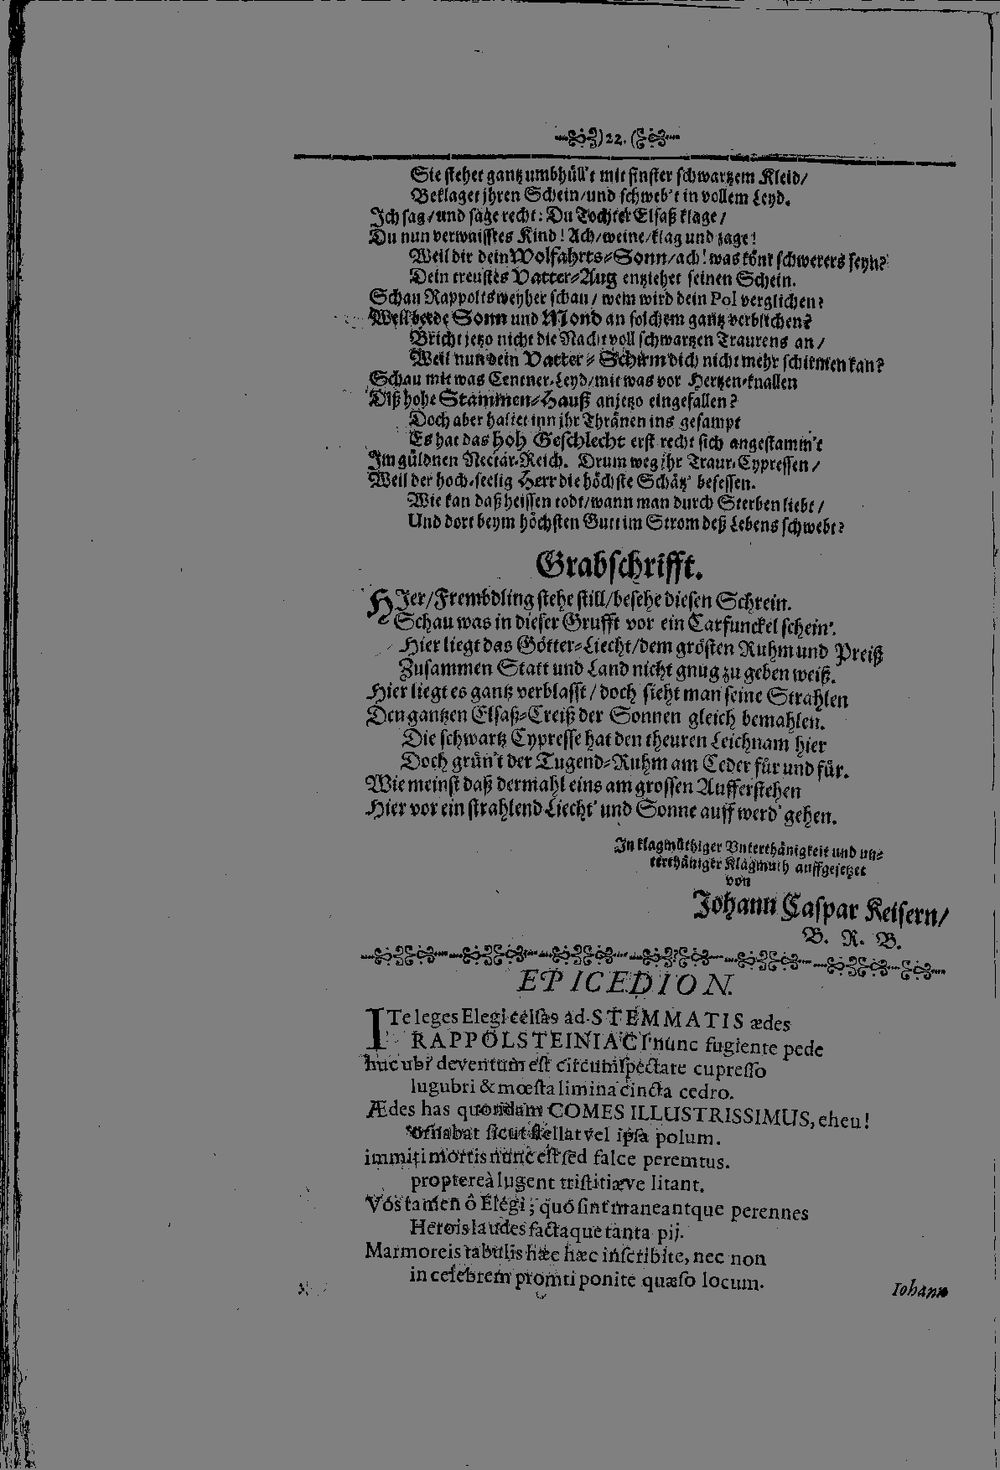 ) 22. (
Sie stehet gantz umbhüll't mit finster schwartzem Kleid/
Beklaget jhren Schein/und schweb't in vollem Leyd.
Ich sag/und säge recht: Du Tochter Elsaß klage/
Du nun verwaisstes Kind! Ach/weine/klag und zage!
Weil dir dein Wolfahrts-Sonn/ach! was könt schwerers seyn?
Dein treustes Vatter-Aug entziehet seinen Schein.
Schau Rappoltsweyher schau/wem wird dein Pol verglichen?
Weil beede Sonn und Mond an solchem gantz verblichen?
Bricht jetzo nicht die Nacht voll schwartzen Traurens an/
Weil nun dein Vatter-Schirm dich nicht mehr schirmen kan?
Schau mit was Centner-Leyd/mit was vor Hertzen-knallen
Diß hohe Stammen-Hauß anjetzo eingefallen?
Doch aber haltet inn jhr Thränen ins gesampt
Es hat das hoh Geschlecht erst recht sich angestamm't
Im güldnen Nectar-Reich. Drum weg jhr Traur-Cypressen/
Weil der hoch-seelig Herr die höchste Schätz' besessen.
Wie kan daß heissen todt/wann man durch Sterben liebt/
Und dort beym höchsten Gutt im Strom deß Lebens schwebt?
Grabschrifft.
HIer/Frembdling stehe still/besehe diesen Schrein.
Schau was in dieser Grufft vor ein Carfunckel schein'.
Hier liegt das Götter-Liecht/dem grösten Ruhm und Preiß
Zusammen Statt und Land nicht gnug zu geben weiß.
Hier liegt es gantz verblasst/doch sieht man seine Strahlen
Den gantzen Elsaß-Creiß der Sonnen gleich bemahlen.
Die schwartz Cypresse hat den theuren Leichnam hier
Doch grün't der Tugend-Ruhm am Ceder für und für.
Wie meinst daß dermahl eins am grossen Aufferstehen
Hier vor ein strahlend Liecht' und Sonne auff werd' gehen.
In klagmüthiger Unterthänigkeit und un-
terthäniger Klagmuth auffgesetzet
von
Johann Caspar Keisern/
B. R. B.
EPICEDION.
ITe leges Elegi celsas ad STEMMATIS ædes
RAPPOLSTEINIACI nunc fugiente pede
huc ubi deventum est circumspectate cupresso
lugubri & mœsta limina cincta cedro.
Ædes has quondam COMES ILLUSTRISSIMUS, eheu!
Ornabat sicut stellat vel ipsa polum.
immiti mortis nunc est sed falce peremtus.
proptereà lugent tristitiæve litant.
Vos tamen ô Elegi; quó sint maneantque perennes
Herois laudes factaque tanta pij.
Marmoreis tabulis hæc hæc inscribite, nec non
in celebrem promti ponite quæso locum.
Iohann